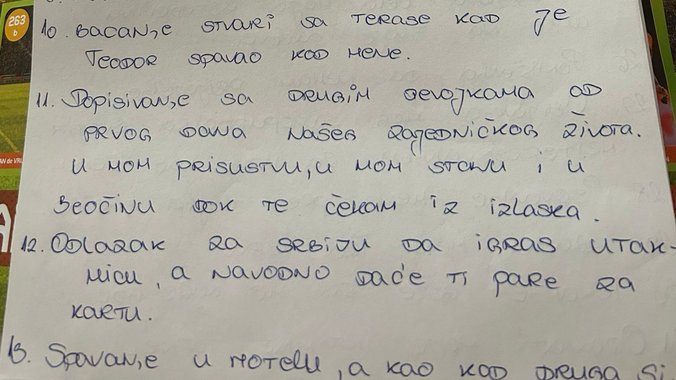 263
b
10. BACANJE STVARI SA TERASE KAD JE
TEODOR SPAVAO KOD MENE.
11. DOPISIVANJE SA DRUGIM DEVOJKAMA OD
PRVOG DANA NAŠEG ZAJEDNIČKOG ŽIVOTA.
U MOM PRISUSTVU, U MOM STANU I U
BEOČINU DOK TE ČEKAM IZ IZLASKA.
12. ODLAZAK ZA SRBIJU DA IGRAS UTAK-
MICU, A NAVODNO DAĆE TI PARE ZA
KARTU.
13. SPAVANJE U HOTELU, A KAO KOD DRUGA SI